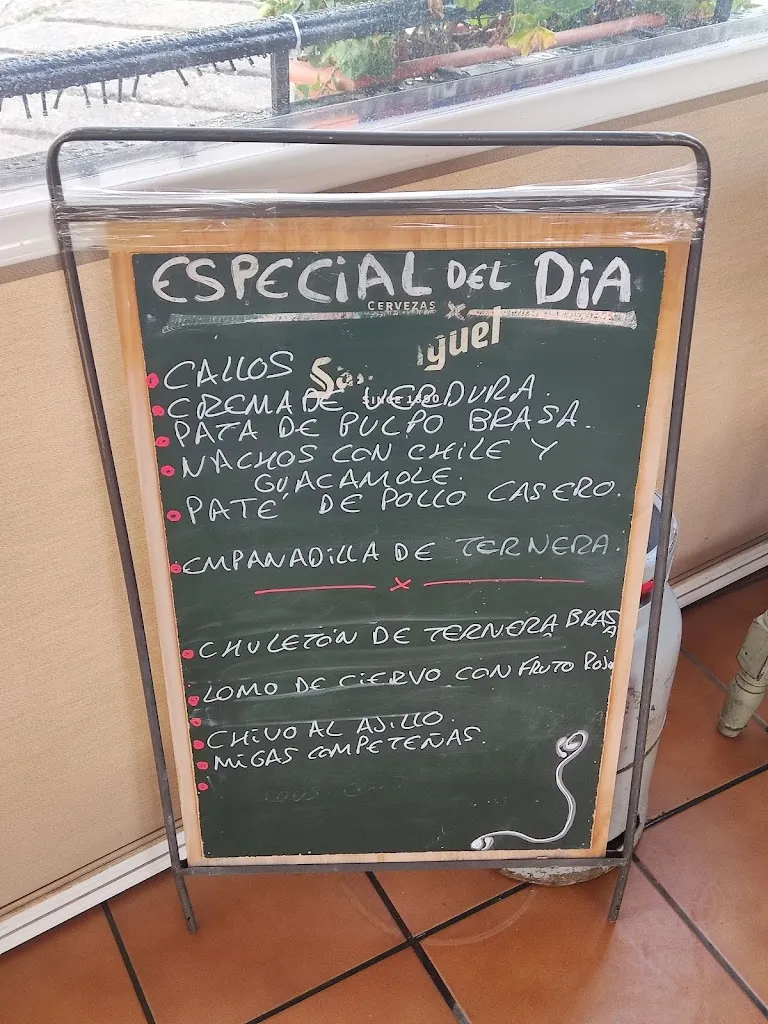 ESPECIAL DEL DIA
CERVEZAS
guel
SINCE 1890
CALLOS
CREMA DE VERDURA.
PATA DE PULPO BRASA.
NACHOS CON CHILE Y
GUACAMOLE.
PATÉ DE POLLO CASERO.
EMPANADILLA DE TERNERA.
CHULETÓN DE TERNERA BRASA
LOMO DE CIERVO CON FRUTO ROJO
CHIVO AL AJILLO.
MIGAS COMPETEÑAS.